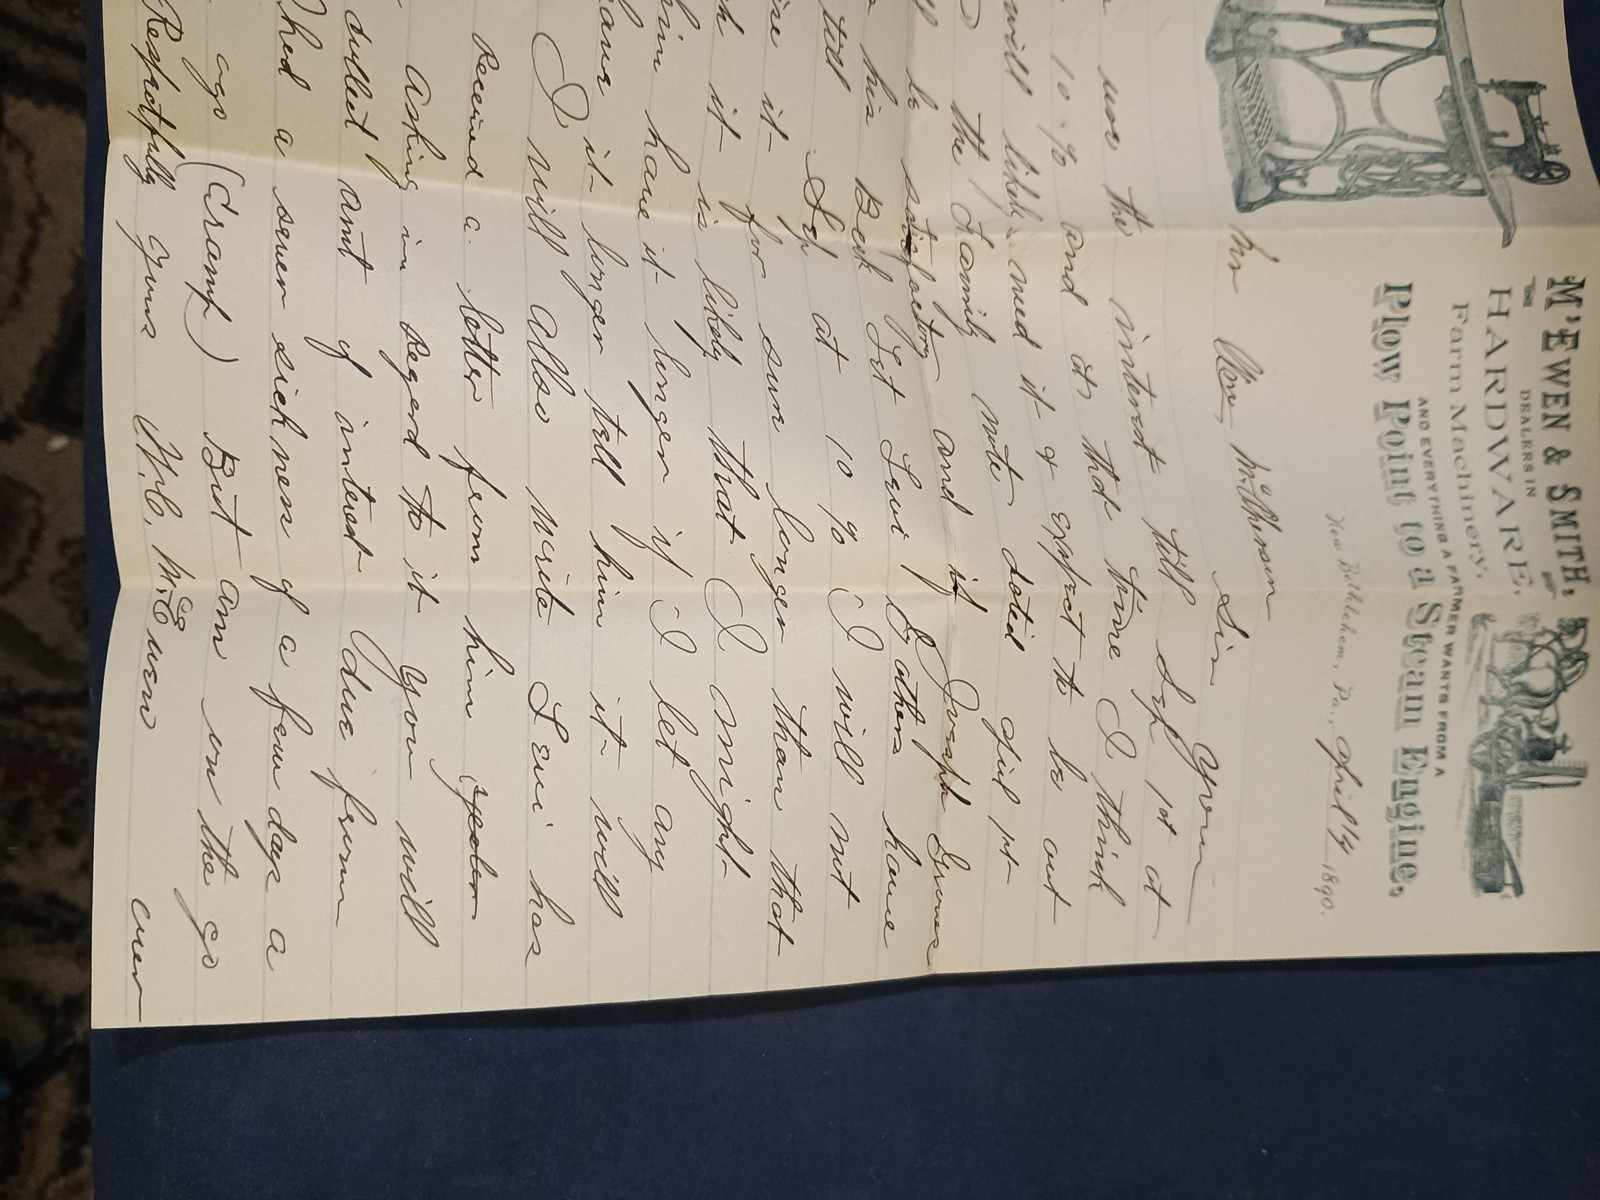 M'EWEN & SMITH,
DEALERS IN
HARDWARE,
Farm Machinery,
AND EVERYTHING A FARMER WANTS FROM A
Plow Point to a Steam Engine.
New Bethlehem, Pa., April 14 1890.
Mr Wm,
Sir Your
use the interest till Sep 1st at
10 % and at that time I think
will likely need it & expect to be out
the Family note, dated Apil 1st
be satisfactory and if Joseph
his Back Yet Levi & others have
till Sep at 10 % I will not
it for sure longer than that
it is likely that I might
him have it longer if I let any
have it longer tell him it will
I will also write Levi has
Received a letter from him
Asking in Regard to it you will
amt of interest due from
had a severe sickness of a few days a
ago (Cramp) But am on the go
Respectfully yours W.C. McEwen over